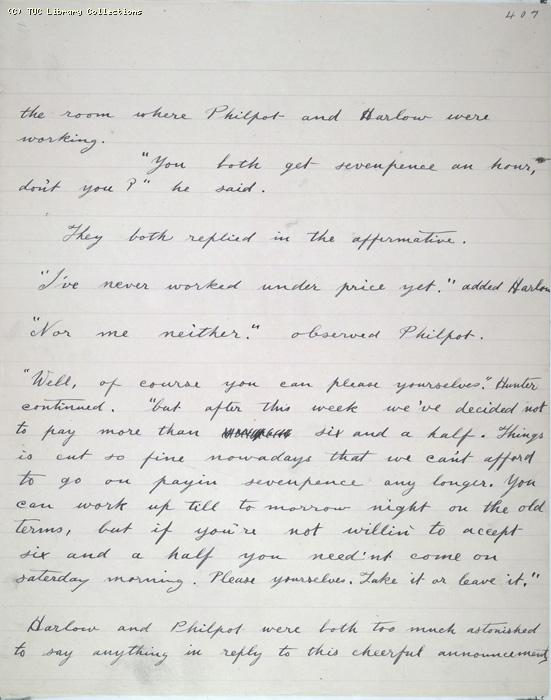 (C) TUC Library Collections
407
the room where Philpot and Harlow were
working.
"You both get sevenpence an hour,
don't you?" he said.
They both replied in the affirmative.
"I've never worked under price yet." added Harlow
"Nor me neither." observed Philpot.
"Well, of course you can please yourselves." Hunter
continued. "but after this week we've decided not
to pay more than six and a half. Things
is cut so fine nowadays that we can't afford
to go on payin sevenpence any longer. You
can work up till to morrow night on the old
terms, but if you're not willin' to accept
six and a half you need'nt come on
saterday morning. Please yourselves. Take it or leave it."
Harlow and Philpot were both too much astonished
to say anything in reply to this cheerful announcement,